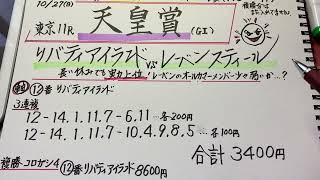 10/27(日)
東京11R 天皇賞(GI)
リバティアイランド vs レーベンスティール
長い休みでも実力上位! レーベンのオールカマーメンバー少々弱いか…?
軸 ⑫番 リバティアイランド
3連複
12-14.1.11.7-6.11…各200円
12-14.1.11.7-10.4.9.8.5…各100円
合計 3400円
複勝-コロガシ4 ⑫番リバティアイランド 8600円